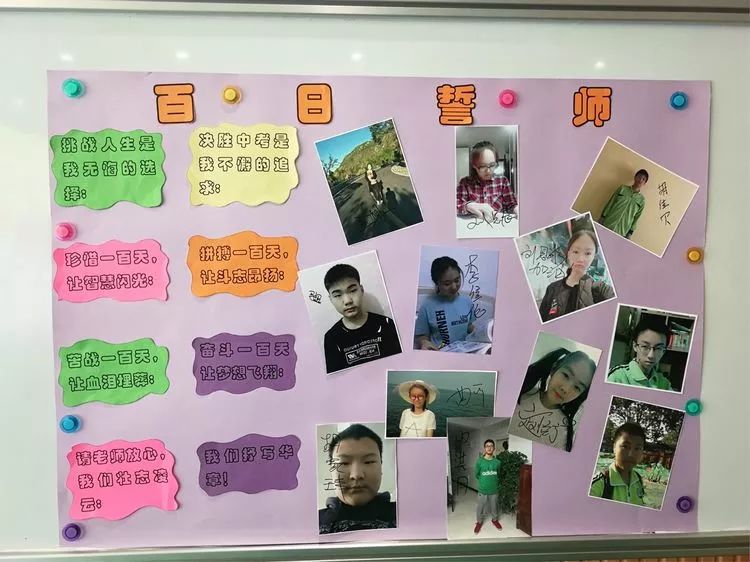 百日誓师
挑战人生是
我无悔的选
择;
决胜中考是
我不懈的追
求;
珍惜一百天,
让智慧闪光;
拼搏一百天,
让斗志昂扬;
苦战一百天,
让血泪挥莽;
奋斗一百天
让梦想飞翔;
请老师放心,
我们壮志凌
云;
我们抒写华
章!
加油